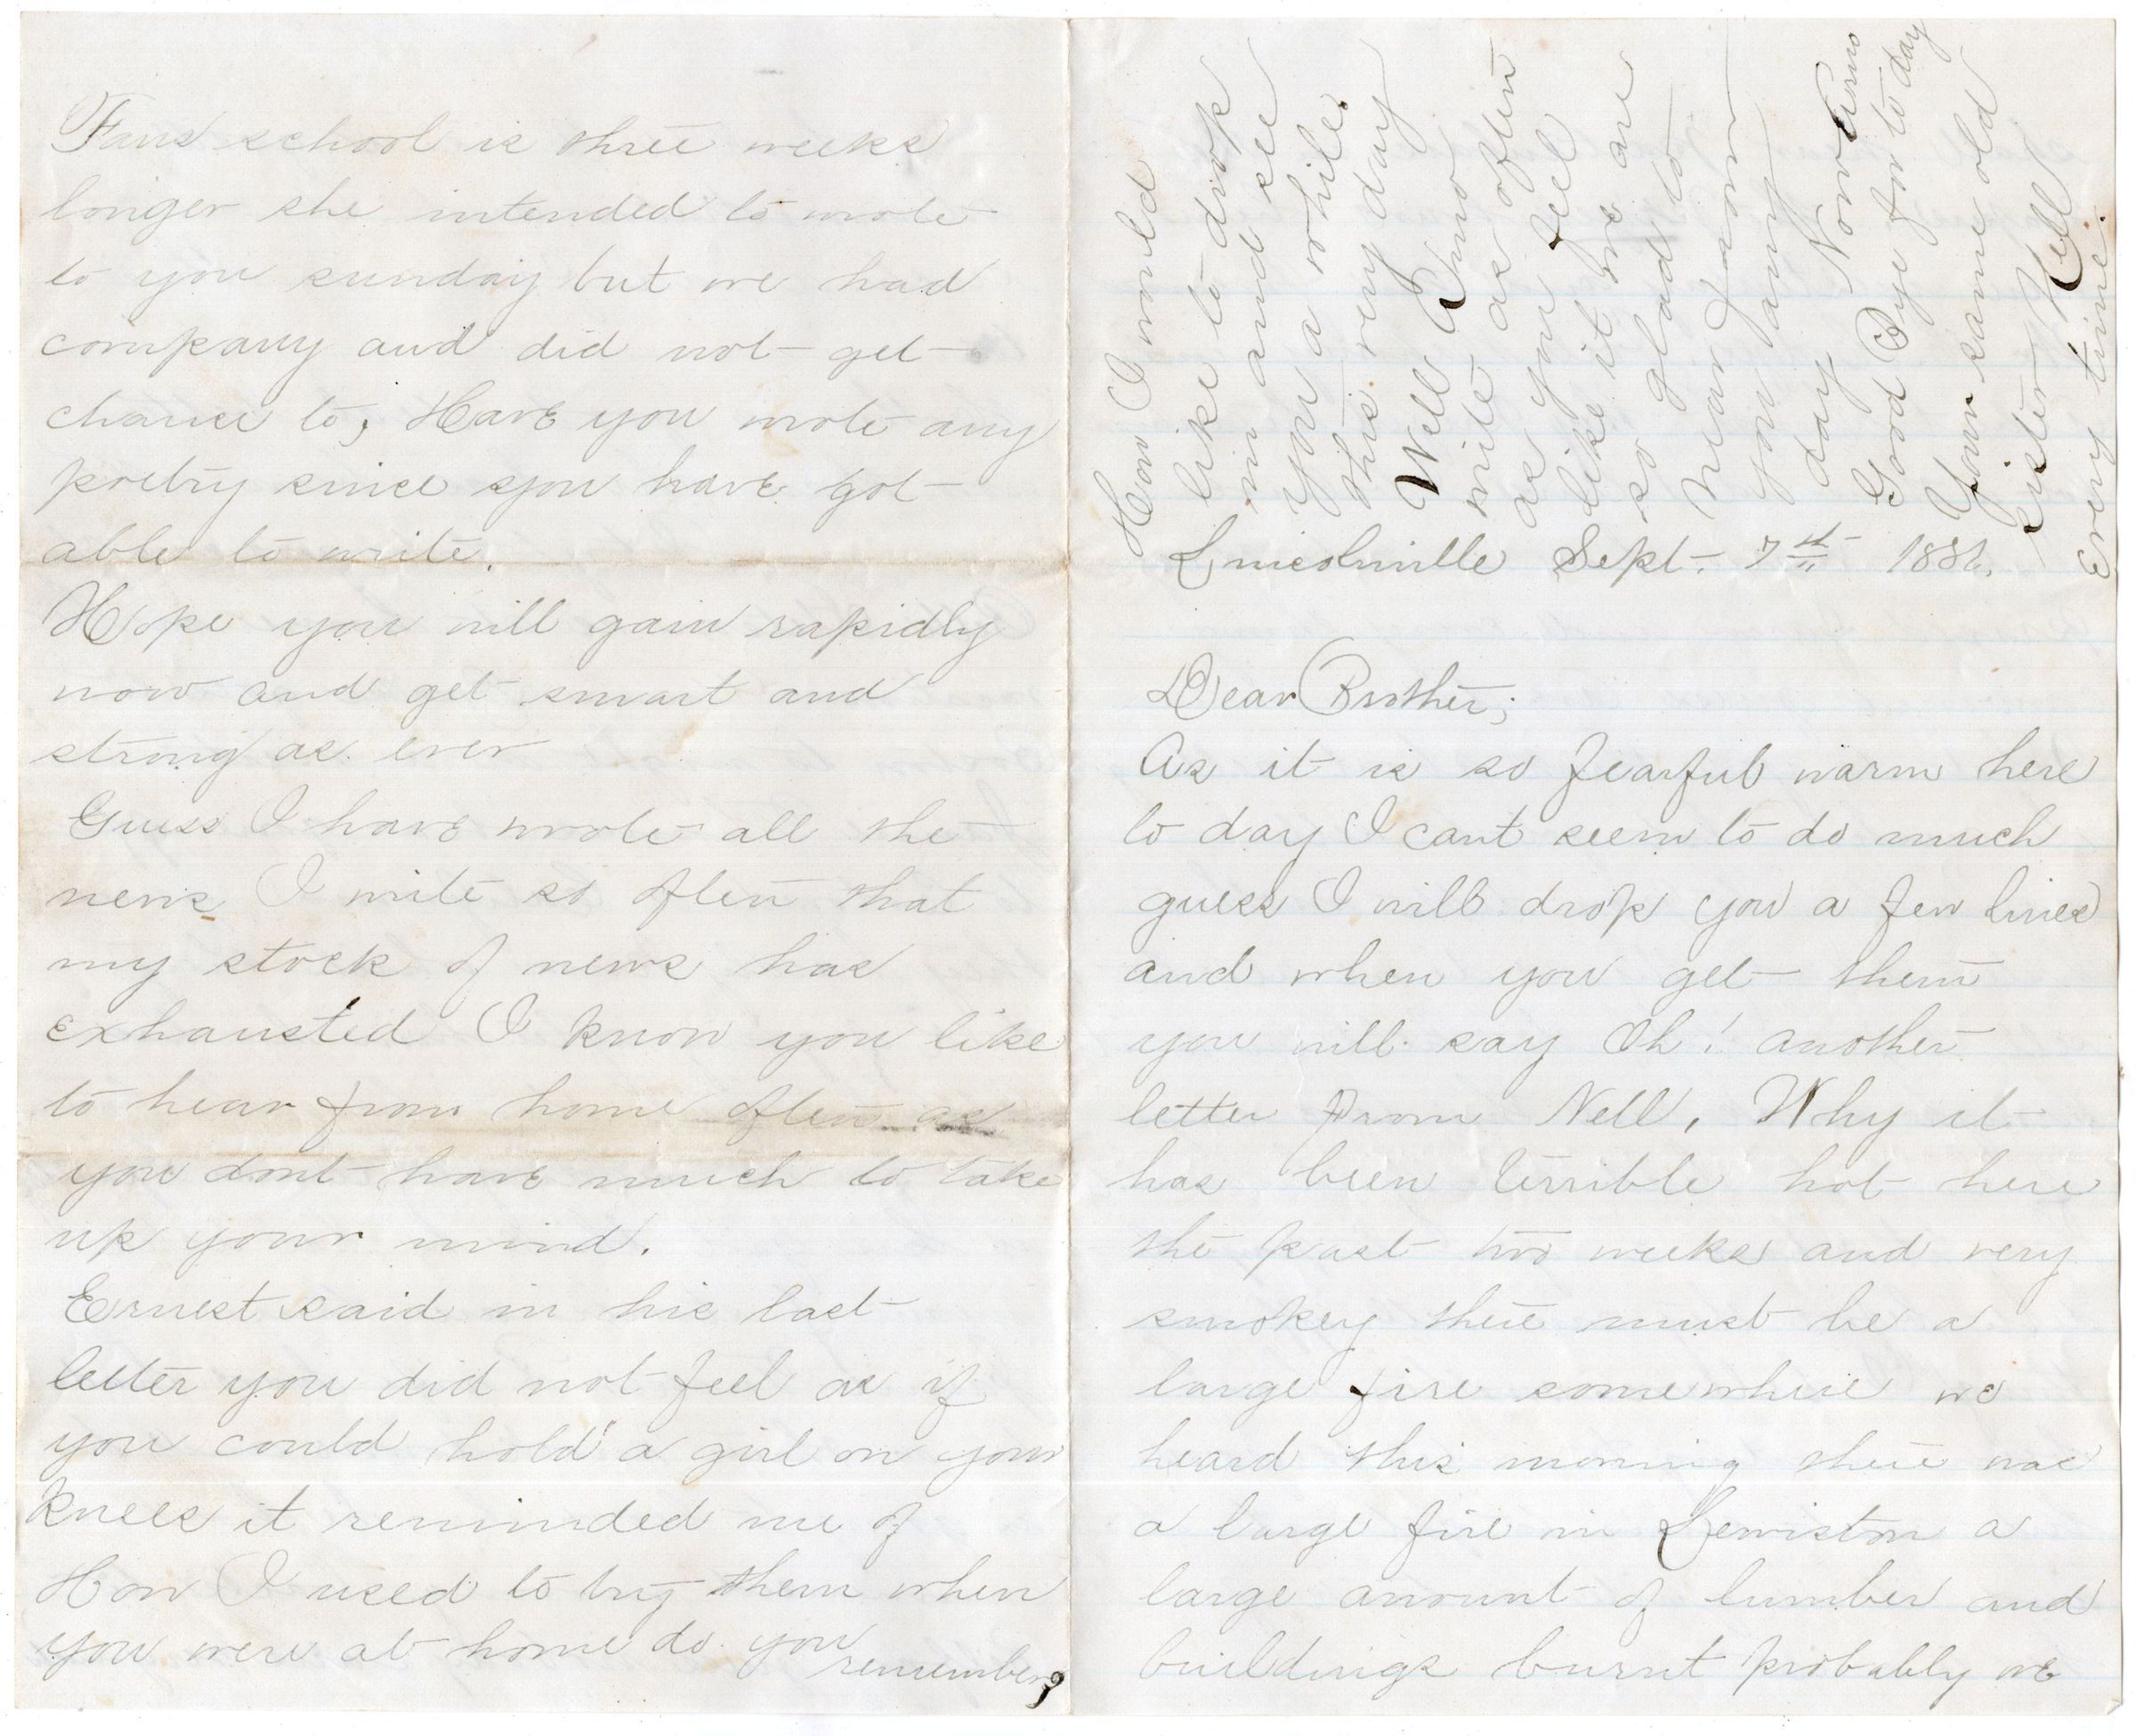 Lincolnville Sept. 7th 1881.
Dear Brother;
As it is so fearful warm here
to day I cant seem to do much
guess I will drop you a few lines
and when you get them
you will say Oh! another
letter from Nell. Why it
has been terrible hot here
the past two weeks and very
smokey there must be a
large fire somewhere we
heard this morning there was
a large fire in Lewiston a
large amount of lumber and
buildings burnt probably we
Fans school is three weeks
longer she intended to wrote
to you sunday but we had
company and did not get
chance to, Have you wrote any
poetry since you have got
able to write.
Hope you will gain rapidly
now and get smart and
strong as ever
Guess I have wrote all the
news I write so often that
my stock of news has
exhausted I know you like
to hear from home often as
you dont have much to take
up your mind.
Ernest said in his last
letter you did not feel as if
you could hold a girl on your
knees it reminded me of
How I used to try them when
you were at home do you
remember?
How I would
like to drop
in and see
you a while
this very day
Well Arno
write as often
as you feel
like it we are
so glad to
hear from
you any
day Now Arno
Good Bye for to day
Your same old
sister Nell
Every time.